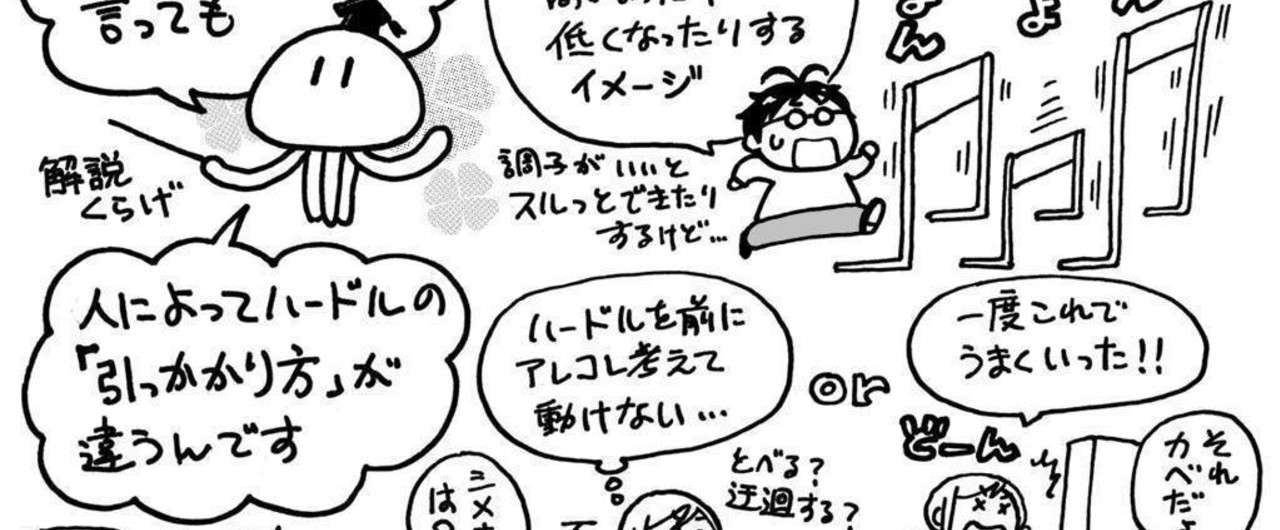 言っても
低くなったりする
イメージ
解説
くらげ
調子がいいと
スルっとできたり
するけど…
人によってハードルの
「引っかかり方」が
違うんです
ハードルを前に
アレコレ考えて
動けない…
or
一度これで
うまくいった!!
どーん
とべる?
迂回する?
それ
カベだ